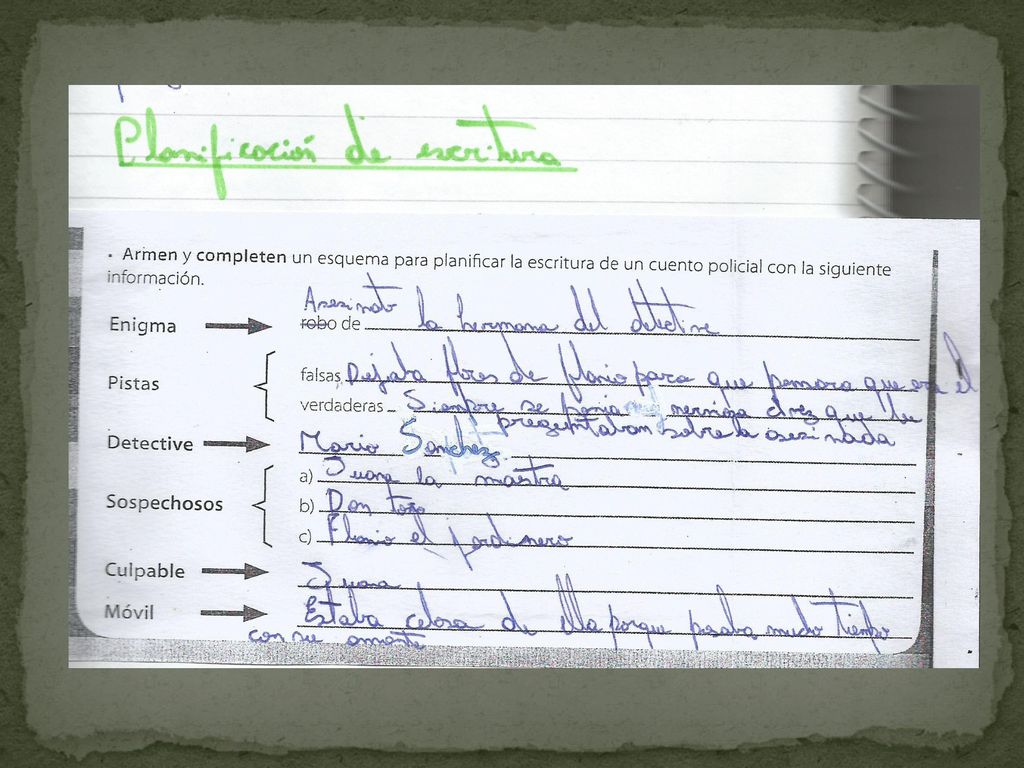 Planificación de escritura
· Armen y completen un esquema para planificar la escritura de un cuento policial con la siguiente
información.
Asesinato
Enigma robo de la hermana del detective
Pistas
falsas Dejaba flores de flavio para que pensara que era el
verdaderas Siempre se ponia muy nerviosa cada vez que le
preguntaban sobre la asesinada
Detective Mario Sanchez.
Sospechosos
a) Juana la maestra
b) Don
c) Flavio el jardinero
Culpable Juana
Móvil Estaba celosa de ella porque pasaba mucho tiempo
con su amante